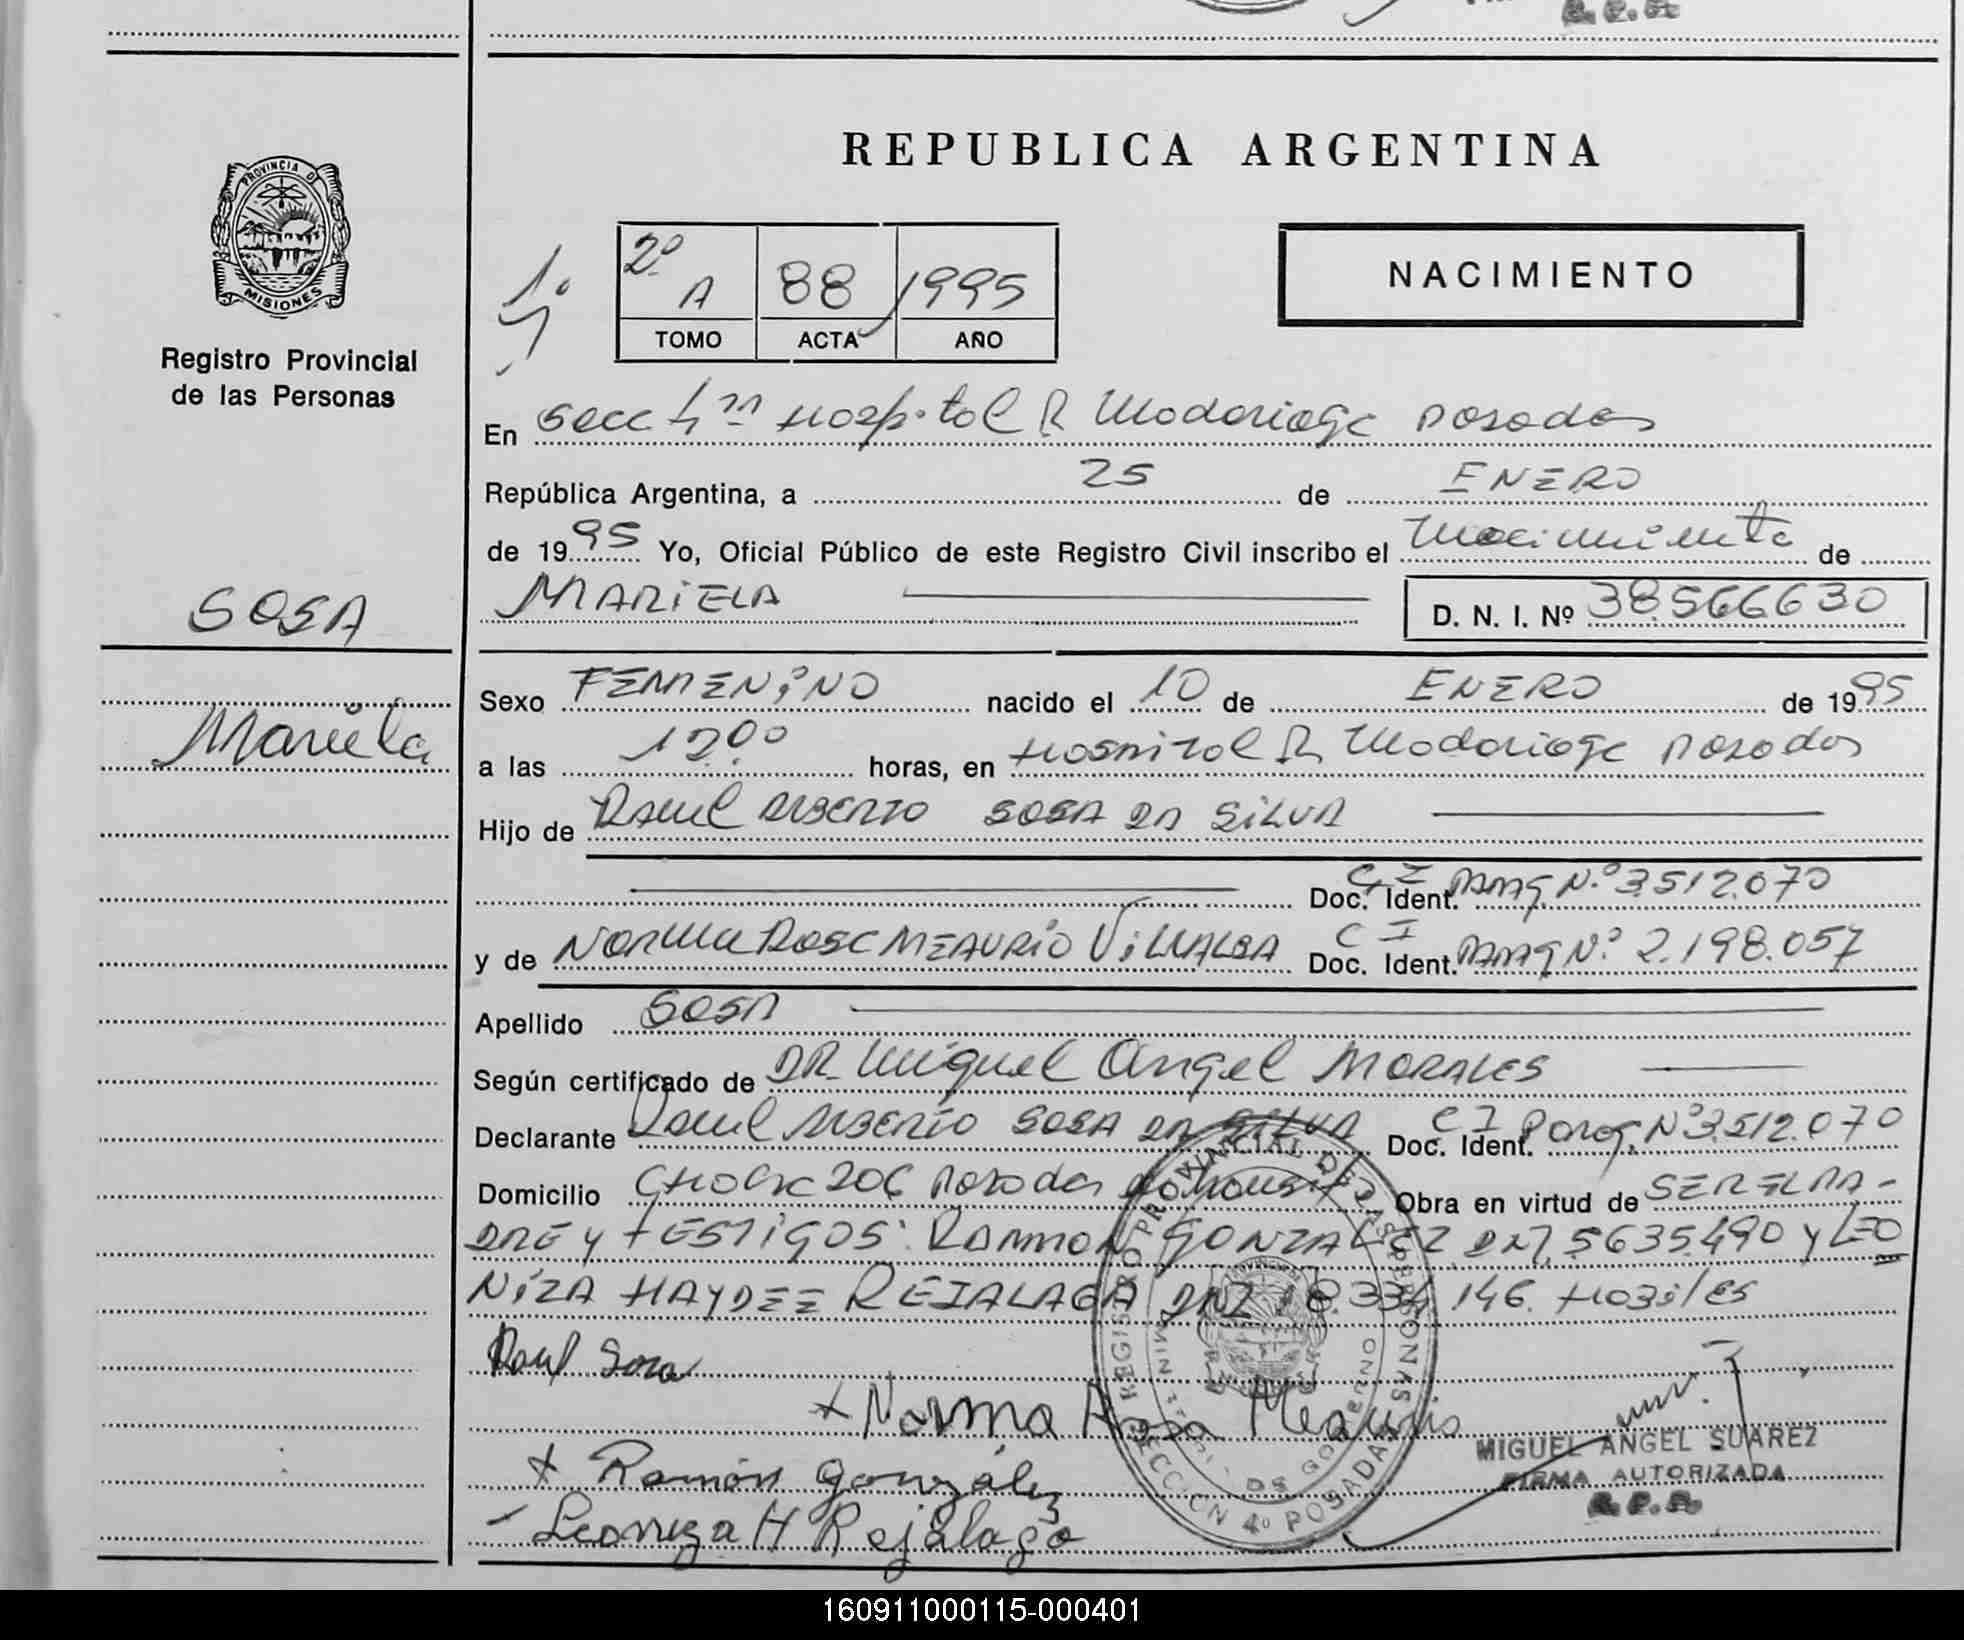 REPUBLICA ARGENTINA
PROVINCIA DE
MISIONES
Registro Provincial
de las Personas
2º A 88 1995
TOMO ACTA AÑO
NACIMIENTO
En Secc 4ta Hospital R Madariaga Posadas
República Argentina, a 25 de ENERO
de 1995 Yo, Oficial Público de este Registro Civil inscribo el Nacimiento de
MARIELA D. N. I. Nº 38566630
SOSA
Mariela
Sexo FEMENINO nacido el 10 de ENERO de 1995
a las 12.00 horas, en Hospital R Madariaga Posadas
Hijo de Raul Alberto SOSA DA SILVA
Doc. Ident. C I PARAG. N.º 3512.070
y de NORMA ROSA MEAURIO VILLALBA Doc. Ident. C I PARAG N.º 2.198.057
Apellido SOSA
Según certificado de DR. Miguel Angel MORALES
Declarante Raul Alberto SOSA DA SILVA Doc. Ident. C I Parag. Nº 3.512.070
Domicilio 206 Posadas Obra en virtud de SER EL PA-
DRE y TESTIGOS: RAMON GONZALEZ DNI 5635.490 y LEO
NIZA HAYDEE REJALAGA DNI 18.334.146. HABILES
Raul Sosa
+ Norma Rosa Meaurio
+ Ramón González
- Leoniza H Rejalaga
REGISTRO PROVINCIAL DE LAS PERSONAS
SECCION 4º POSADAS
MIGUEL ANGEL SUAREZ
FIRMA AUTORIZADA
R.P.P.
160911000115-000401